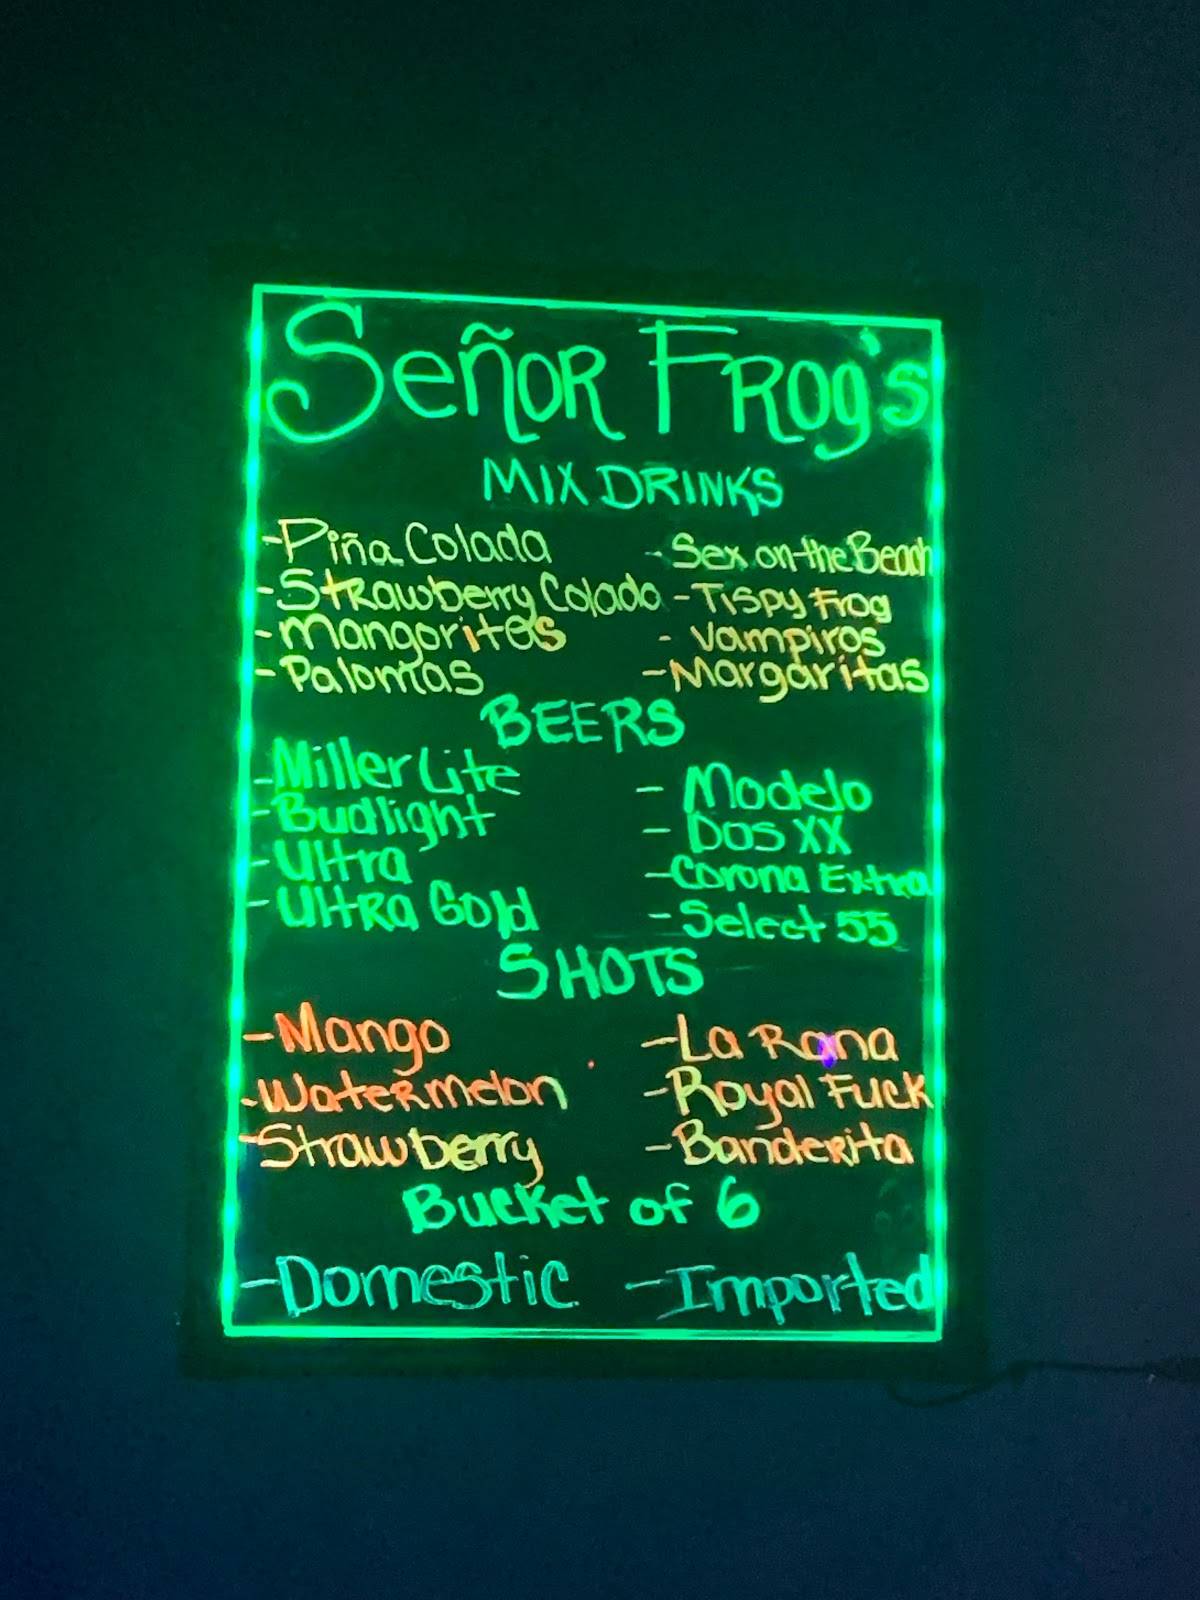 Señor Frog's
MIX DRINKS
-Piña Colada
-Strawberry Colada
-Mangoritas
-Palomas
-Sex on the Beach
-Tispy Frog
-Vampiros
-Margaritas
BEERS
-Miller Lite
-Budlight
-Ultra
-Ultra Gold
-Modelo
-Dos XX
-Corona Extra
-Select 55
SHOTS
-Mango
-Watermelon
-Strawberry
-La Rana
-Royal Fuck
-Banderita
Bucket of 6
-Domestic -Imported